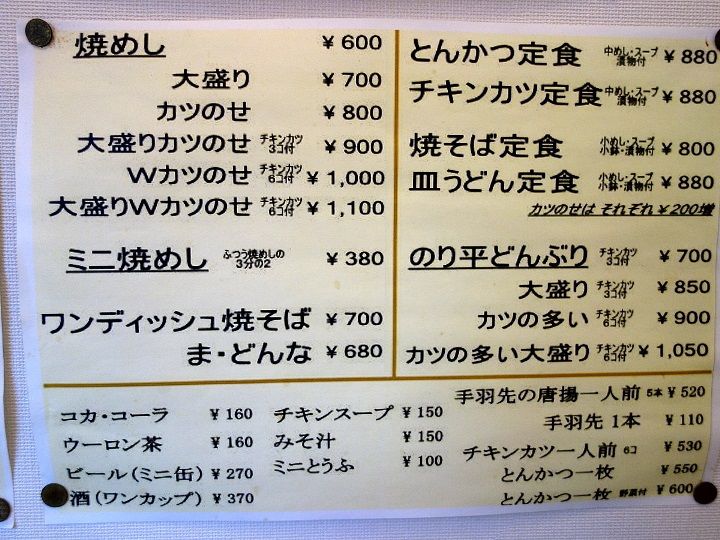 焼めし ¥600
大盛り ¥700
カツのせ ¥800
大盛りカツのせ チキンカツ3コ付 ¥900
Wカツのせ チキンカツ6コ付 ¥1,000
大盛りWカツのせ チキンカツ6コ付 ¥1,100
ミニ焼めし ふつう焼めしの3分の2 ¥380
ワンディッシュ焼そば ¥700
ま・どんな ¥680
とんかつ定食 中めし・スープ漬物付 ¥880
チキンカツ定食 中めし・スープ漬物付 ¥880
焼そば定食 小めし・スープ小鉢・漬物付 ¥800
皿うどん定食 小めし・スープ小鉢・漬物付 ¥880
カツのせは それぞれ¥200増
のり平どんぶり チキンカツ3コ付 ¥700
大盛り チキンカツ3コ付 ¥850
カツの多い チキンカツ6コ付 ¥900
カツの多い大盛り チキンカツ6コ付 ¥1,050
コカ・コーラ ¥160
ウーロン茶 ¥160
ビール(ミニ缶) ¥270
酒(ワンカップ) ¥370
チキンスープ ¥150
みそ汁 ¥150
ミニとうふ ¥100
手羽先の唐揚一人前 5本 ¥520
手羽先 1本 ¥110
チキンカツ一人前 6コ ¥530
とんかつ一枚 ¥550
とんかつ一枚 野菜付 ¥600